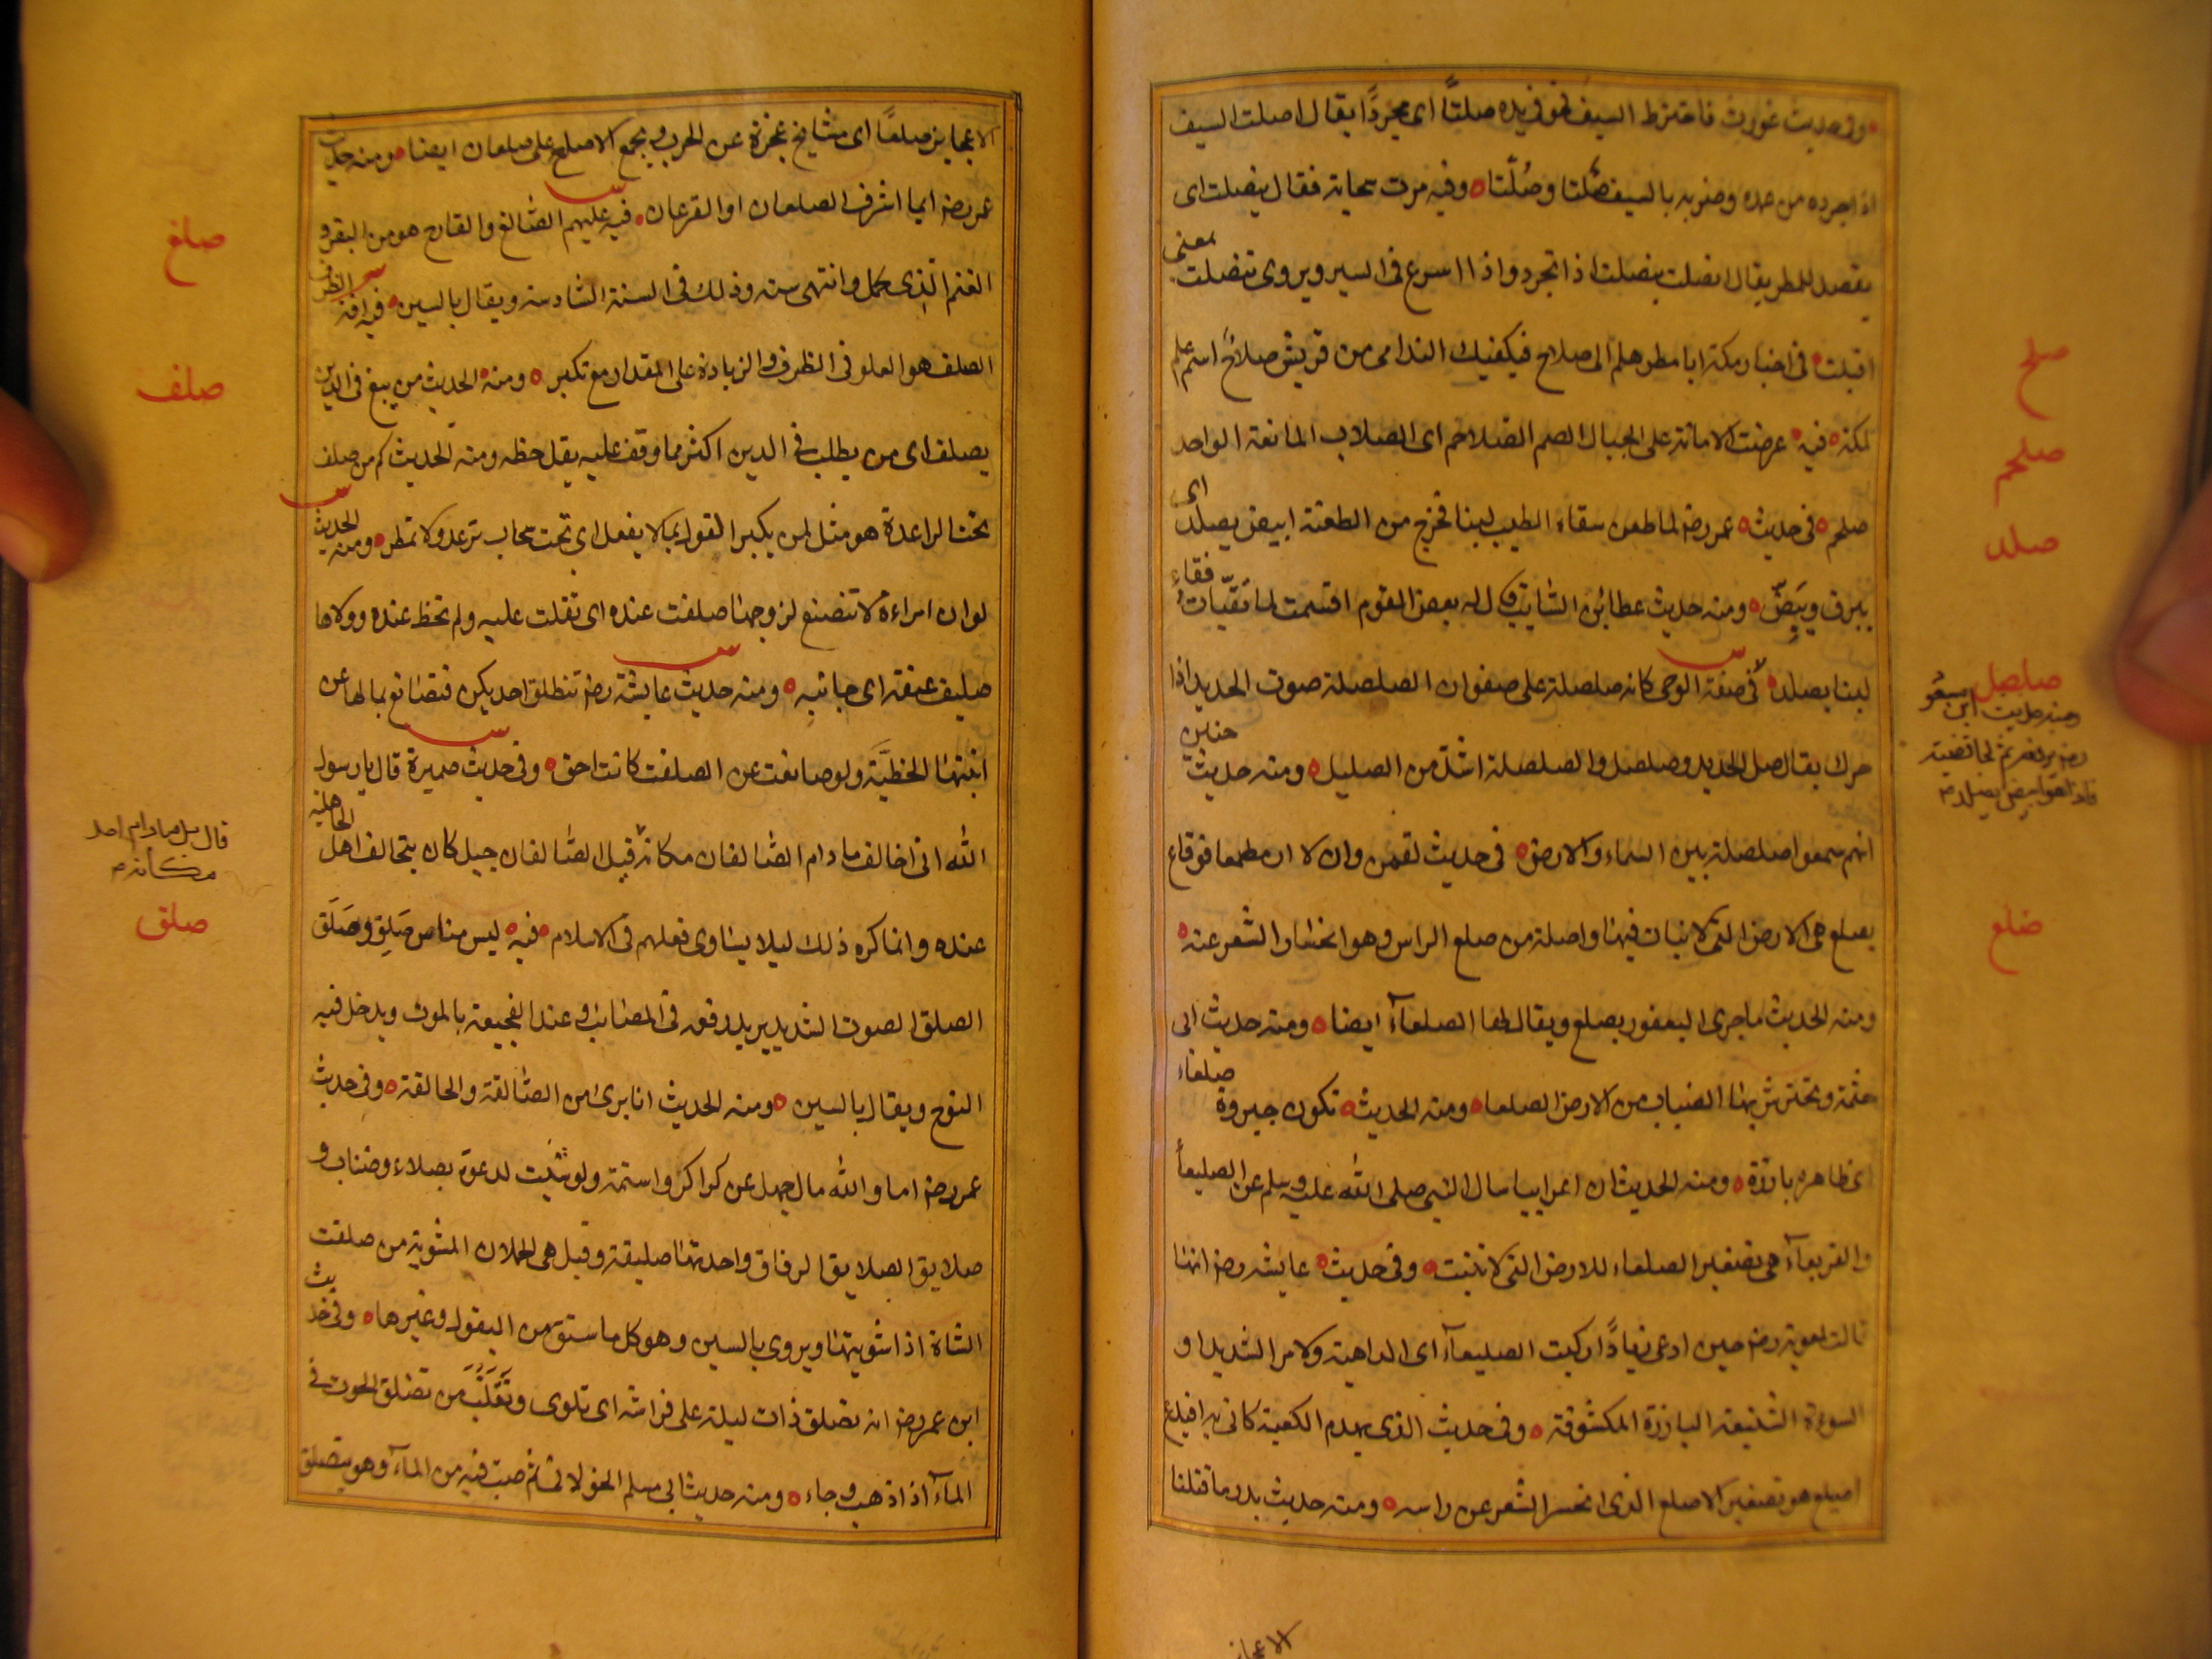 وفى حديث غورث فاخترط السيف فهو فى يده صلتًا اى مجردًا يقال اصلت السيف
اذا جرده من غمده وضربه بالسيف صَلتا وصُلتا وفيه مرت سحابة فقال ينصلت اى
يقصد للمطر يقال انصلت ينصلت اذا تجرد واذا اسرع فى السير ويروى تنصلت بمعنى
اقبلت فى اخبار مكة ابا مطر هلم الى صلاح فيكفيك الندامى من قريش صلاح اسم علم
لمكة فيه عرضت الامانة على الجبال الصم الصلاخم اى الصلاب المانعة الواحد
صلخم فى حديث عمر رضه لما طعن سقاه الطبيب لبنا فخرج من الطعنة ابيض يصلد اى
يبرق ويَبِصّ ومنه حديث عطا بن السايب قال له بعض القوم اقسمت لما تقيّات فقاء
لبنا يصلد فى صفة الوحى كانه صلصلة على صفوان الصلصلة صوت الحديد اذا
حرك يقال صل الحديد وصلصل والصلصلة اشد من الصليل ومنه حديث حنين
انهم سمعوا صلصلة بين السماء والارض فى حديث لقمن وان لا ار مطمعا فوقاع
بصلع هى الارض التى لا نبات فيها واصله من صلع الراس وهو انحسار الشعر عنه
ومنه الحديث ما جرى اليعفور بصلع ويقال لها الصلعآء ايضا ومنه حديث ابى
حثمة وتحترش بها الضباب من الارض الصلعا ومنه الحديث تكون جبروة صلعاء
اى ظاهره بارزة ومنه الحديث ان اعرابيا سال النبى صلى الله عليه وسلم عن الصليعا
والقريعآء هى تصغير الصلعاء للارض التى لا تنبت وفى حديث عايشه رضه انها
قالت لمعوية رضه حين ادعى زيادًا ركبت الصليعآء اى الداهية والامر الشديد او
السوءة الشنيعة البارزة المكشوفة وفى حديث الذى يهدم الكعبة كانى به افيدع
اصيلع هو تصغير الاصلع الذى انحسر الشعر عن راسه ومنه حديث بدر ما قتلنا
صلح
صلخم
صلد
صلصل
ومنه حديث ابن مسعود
صلع
الاعجايز
الا عجايز صلعًا اى مشايخ عجزة عن الحرب ويجمع الاصلع على صلعان ايضا ومنه حديث
عمر رضه ايما اشرف الصلعان او القرعان فيه عليهم الصالغ والقارح هو من البقر و
الغنم الذى كمل وانتهى سنه وذلك فى السنة السادسة ويقال بالسين فيه افة الظرف
الصلف هو الغلو فى الظرف والزيادة على المقدار مع تكبر ومنه الحديث من يبغ فى الدين
يصلف اى من يطلب فى الدين اكثر مما وقف عليه يقل حظه ومنه الحديث كم من صلف
تحت الراعدة هو مثل لمن يكثر القول بما لا يفعل اى تحت سحاب ترعد ولا تمطر ومنه الحديث
لو ان امراءة لا تتصنع لزوجها صلفت عنده اى ثقلت عليه ولم تحظ عنده وولاها
صليف عنقه اى جانبيه ومنه حديث عايشة رضه تنطلق احديكن فتصانع بمالها عن
ابنتها الحظيّة ولو صانعت عن الصلفت كانت احق وفى حديث ضميرة قال يا رسول
الله انى احالف ما دام الصالفان مكانه قيل الصالفان جبل كان يتحالف اهل الجاهلية
عنده وانما كره ذلك ليلا يساوى فعلهم فى الاسلام فيه ليس منا من صَلق او حَلَق
الصلق الصوت الشديد يريد رفعه فى المصائب وعند الفجيعة بالموت ويدخل فيه
النوح ويقال بالسين ومنه الحديث انا برئ من الصالقة والحالقة وفى حديث
عمر رضه اما والله ما اجهل عن كراكر واسنمة ولو شئت لدعوت بصلاء وصناب و
صلايق الصلايق الرقاق واحدتها صليقة وقيل هى الحملان المشوية من صلقت
الشاة اذا شويتها ويروى بالسين وهو كل ما سلق من البقول وغيرها وفى حديث
ابن عمر رضه انه تصلق ذات ليلة على فراشه اى تلوى وتَقَلَّبَ من تصلق الحوت فى
المآء اذا ذهب وجاء ومنه حديث ابى مسلم الخولانى ثم صب فيه من المآء وهو يتصلق
صلغ
صلف
قال بل ما دام احد
مكانه
صلق